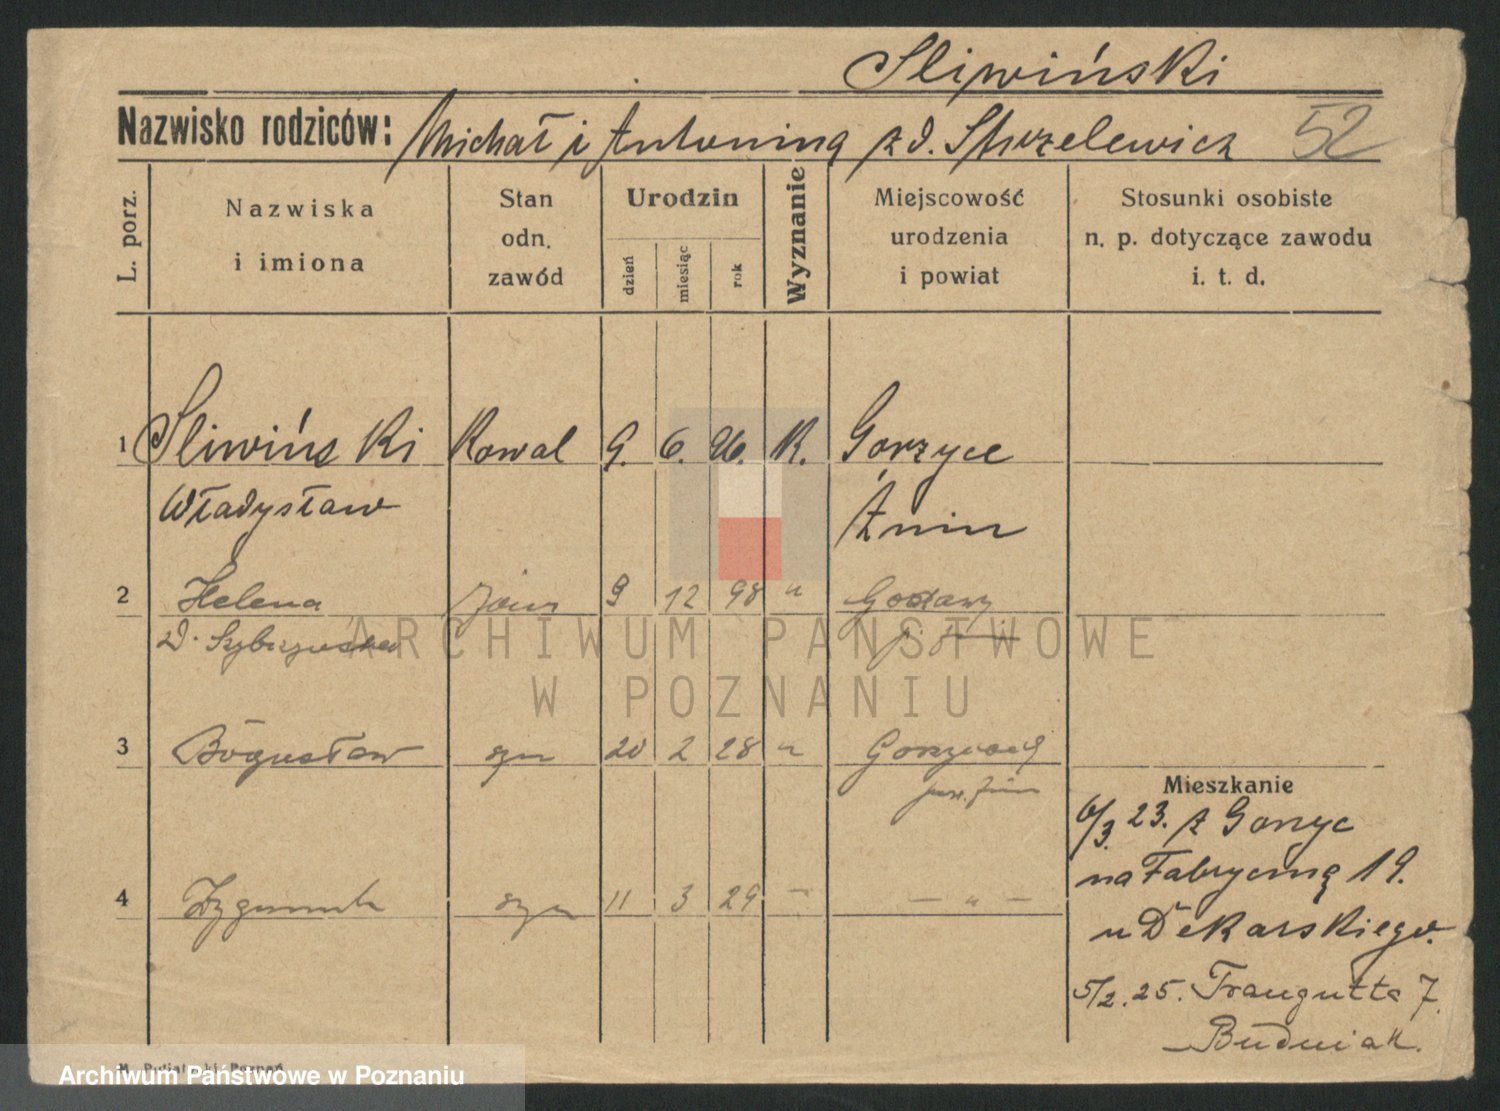 Sliwiński
Nazwisko rodziców: Michał i Antonina z d. Strzelewicz 52
L. porz.
Nazwiska
i imiona
Stan
odn.
zawód
Urodzin
dzień
miesiąc
rok
Wyznanie
Miejscowość
urodzenia
i powiat
Stosunki osobiste
n. p. dotyczące zawodu
i. t. d.
1 Sliwiński Kowal 9. 6. 96. K. Gorzyce
Władysław Żnin
2 Helena żona 9 12 98 "
d.
ARCHIWUM PAŃSTWOWE
W POZNANIU
3 Bogusław syn 20 2 28 "
pow. Żnin
Mieszkanie
6/3. 23. z Gorzyc
na Fabryczną 19.
u Dekarskiego.
4 Zygmunt syn 11 3 29 — — " —
5/2. 25. Traugutta 7.
Budniak.
Poznań
Archiwum Państwowe w Poznaniu